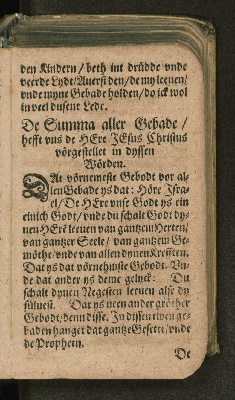 den Kindern / beth int drüdde vnde
veerde Lydt / Auerst den / de my leeuen /
vnde myne Gebade holden / do ick wol
in veel dusent Lede.
De Summa aller Gebade /
hefft vns de HEre JEsus Christus
vörgestellet in dyssen
Wörden.
DAt vörnemeste Gebodt vor al-
len Gebade ys dat: Höre Isra-
el / De HEre vnse Godt ys ein
einich Godt / vnde du schalt Godt dy-
nen HErē leeuen van gantzem Herten /
van gantzer Seele / van gantzem Ge-
möthe / vnde van allen dynen Krefften.
Dat ys dat vörnehmste Gebodt. Vn-
de dat ander ys deme gelyck: Du
schalt dynen Negesten leeuen alse dy
süluest. Dar ys neen ander gröther
Gebodt / denn disse. In dyssen twen ge-
baden hanget dat gantze Gesette / vnde
de Propheten.
De